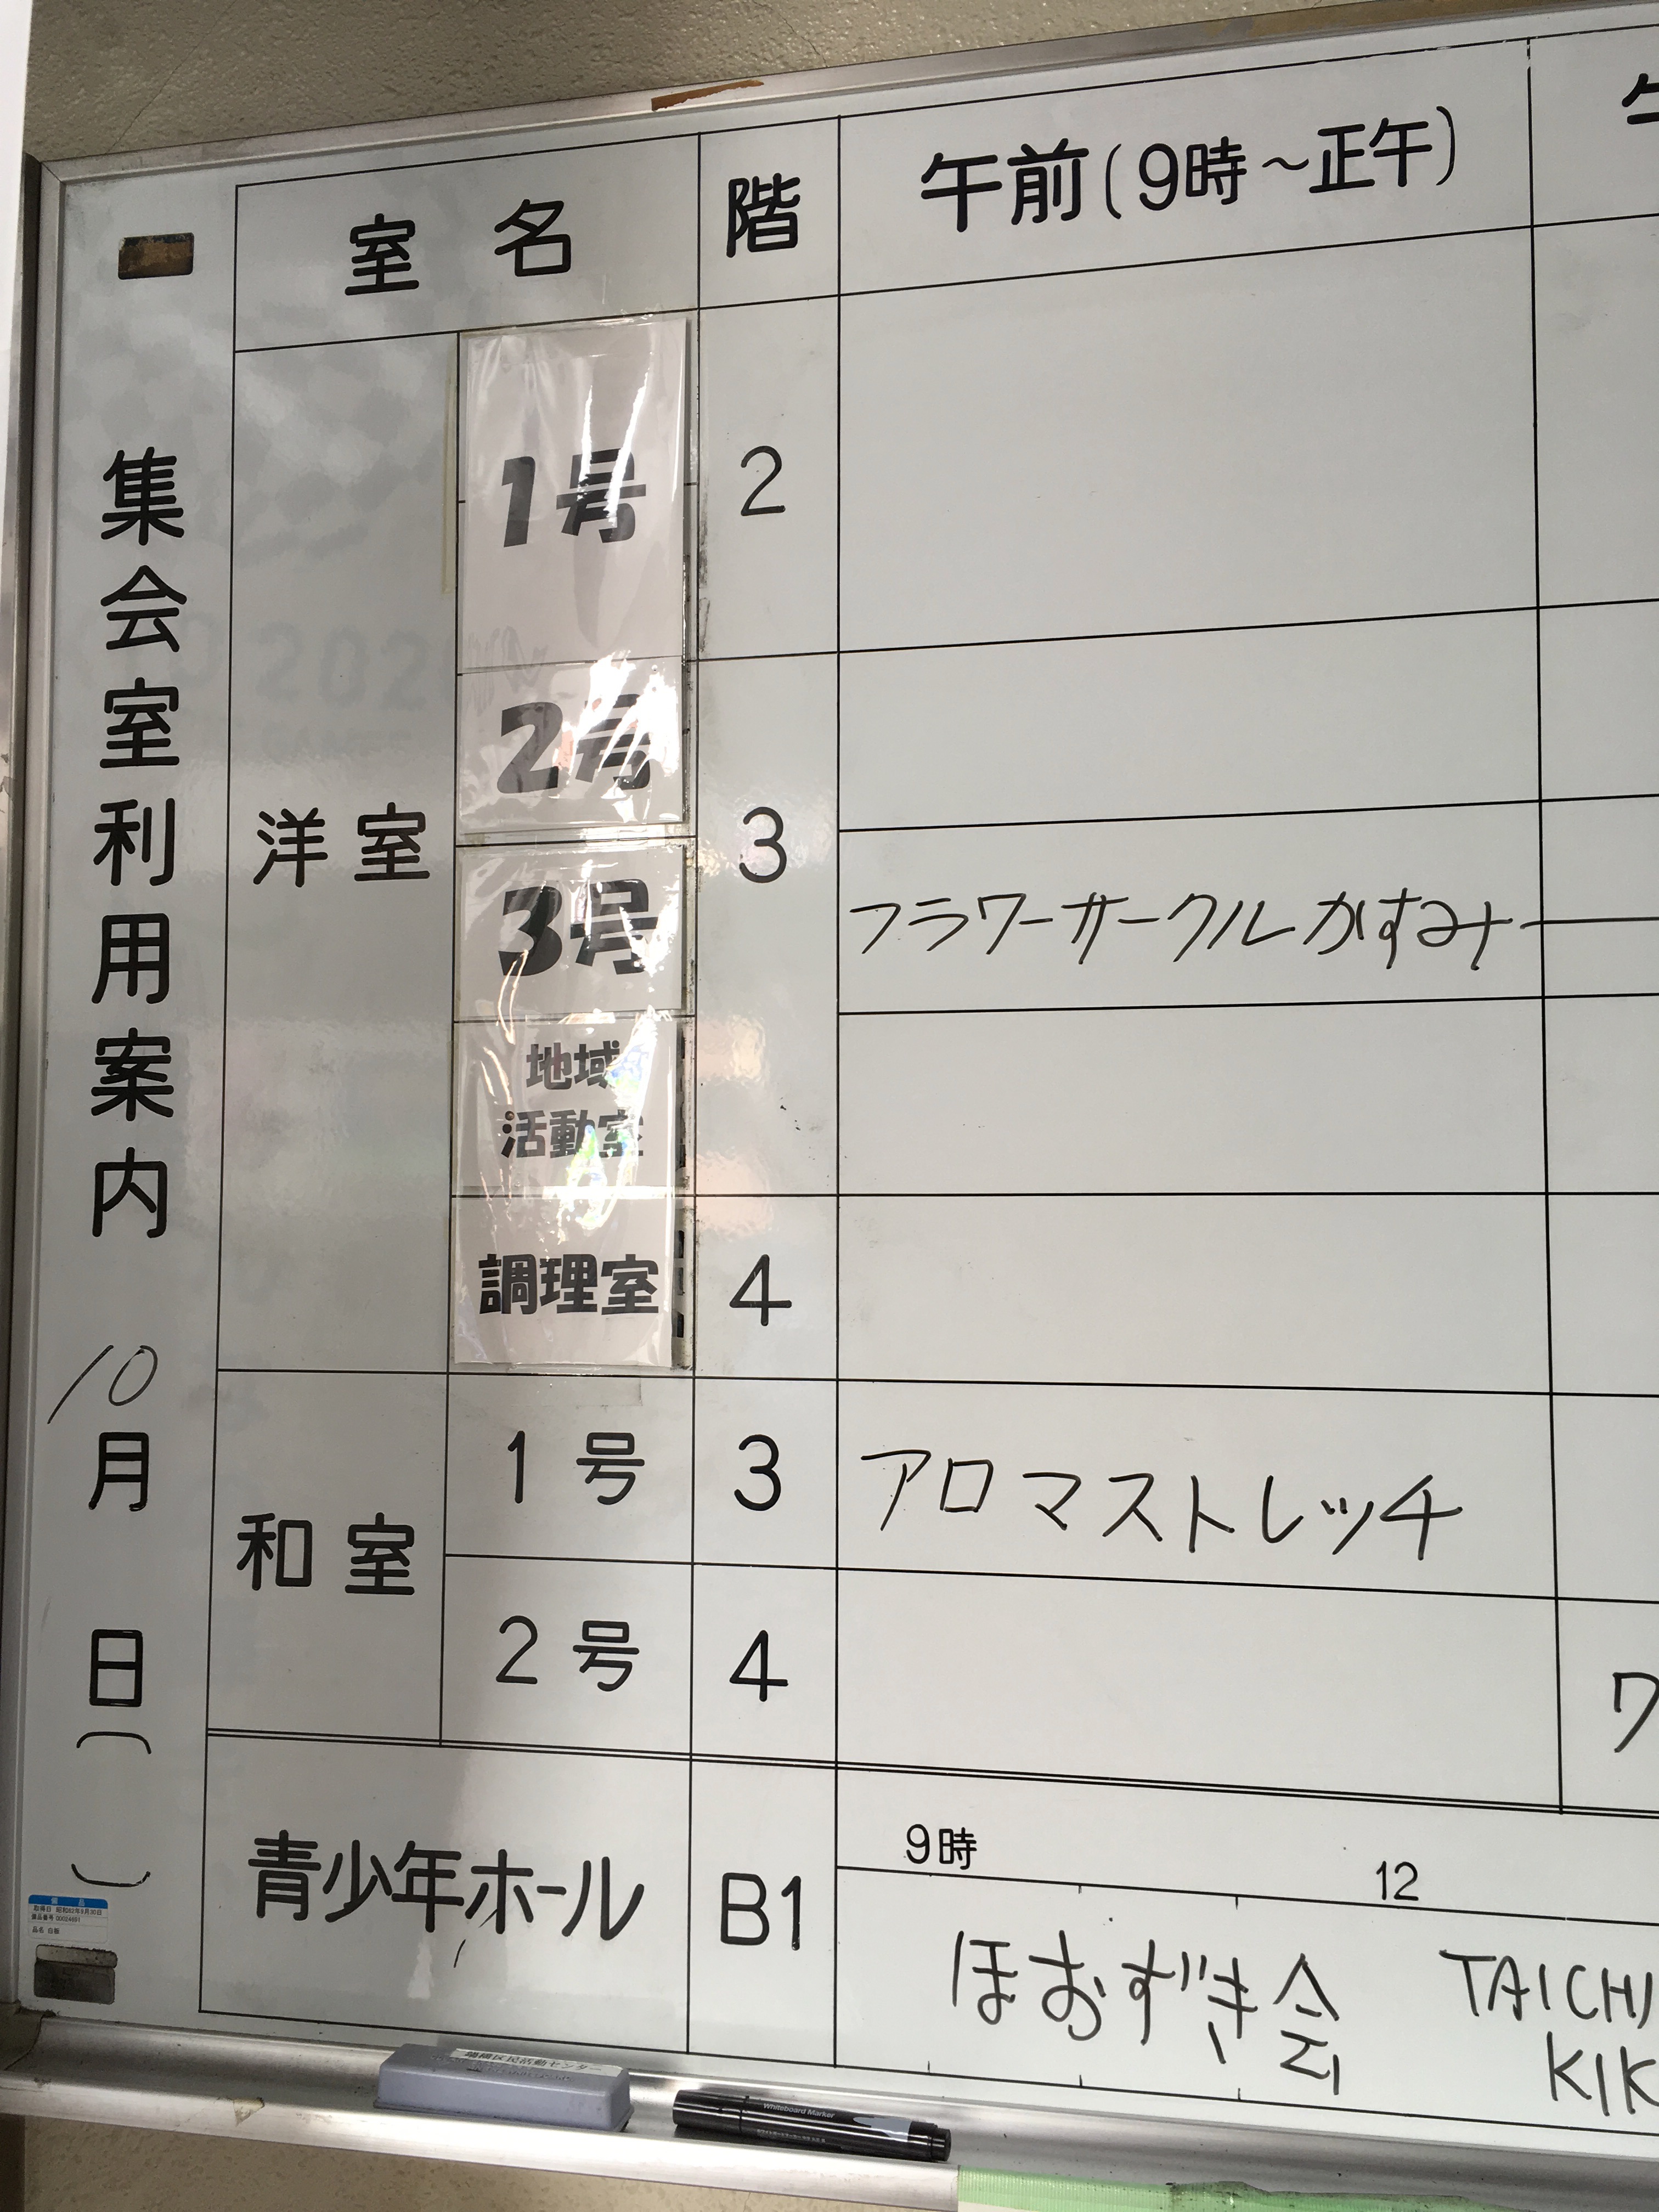 集会室利用案内
10月 日( )
室名 階 午前(9時〜正午)
洋室
1号 2
2号
3
3号 フラワーサークルかすみ
地域
活動室
調理室 4
和室
1号 3 アロマストレッチ
2号 4 ワ
青少年ホール B1
9時 12
ほおずき会 TAICHI
KIK
備品
取得日 昭和62年9月30日
品名 白板
Whiteboard Marker